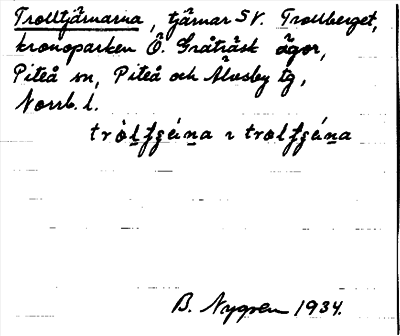 Trolltjärnarna, tjärnar SV. Trollberget,
kronoparken Ö. Gråträsk ägor,
Piteå sn, Piteå och Älvsby tg,
Norrb. l.
B. Nygren 1934.